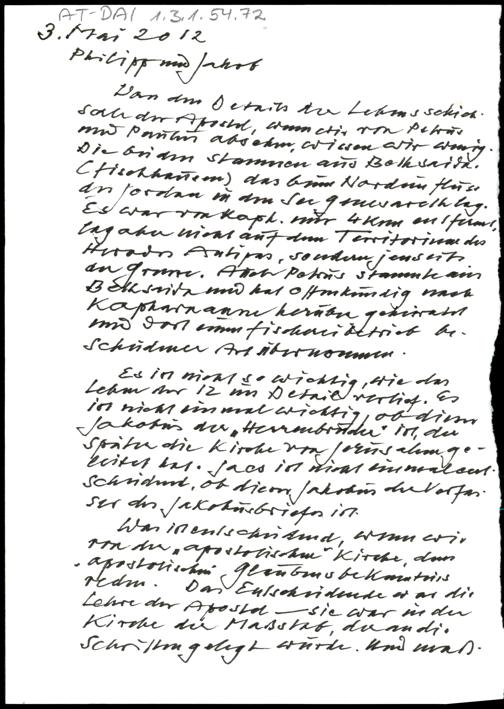 AT-DAI 1.3.1.54.72
3. Mai 2012
Philipp und Jakob
Von den Details der Lebensschick-
sale der Apostel, wenn wir von Petrus
und Paulus absehen, wissen wir wenig.
Die beiden stammen aus Bethsaida
(Fischhausen) das beim Nordeinfluss
des Jordan in den See Genesareth lag.
Es war von Kaph. nur 4 km entfernt,
lag aber nicht auf dem Territorium des
Herodes Antipas, sondern jenseits
der Grenze. Auch Petrus stammte aus
Bethsaida und hat offenkundig nach
Kapharnaum herüber geheiratet
und dort einen Fischereibetrieb be-
scheidener Art übernommen.
Es ist nicht so wichtig, wie das
Leben der 12 im Detail verlief. Es
ist nicht einmal wichtig, ob dieser
Jakobus der „Herrenbruder" ist, der
später die Kirche von Jerusalem ge-
leitet hat. Ja es ist nicht einmal ent-
scheidend, ob dieser Jakobus der Verfas-
ser des Jakobusbriefes ist.
Was ist entscheidend, wenn wir
von der „apostolischen" Kirche, dem
„apostolischen Glaubensbekenntnis
reden. Das Entscheidende war die
Lehre der Apostel – sie war in der
Kirche der Maßstab, der an die
Schriften gelegt wurde. Und maß-